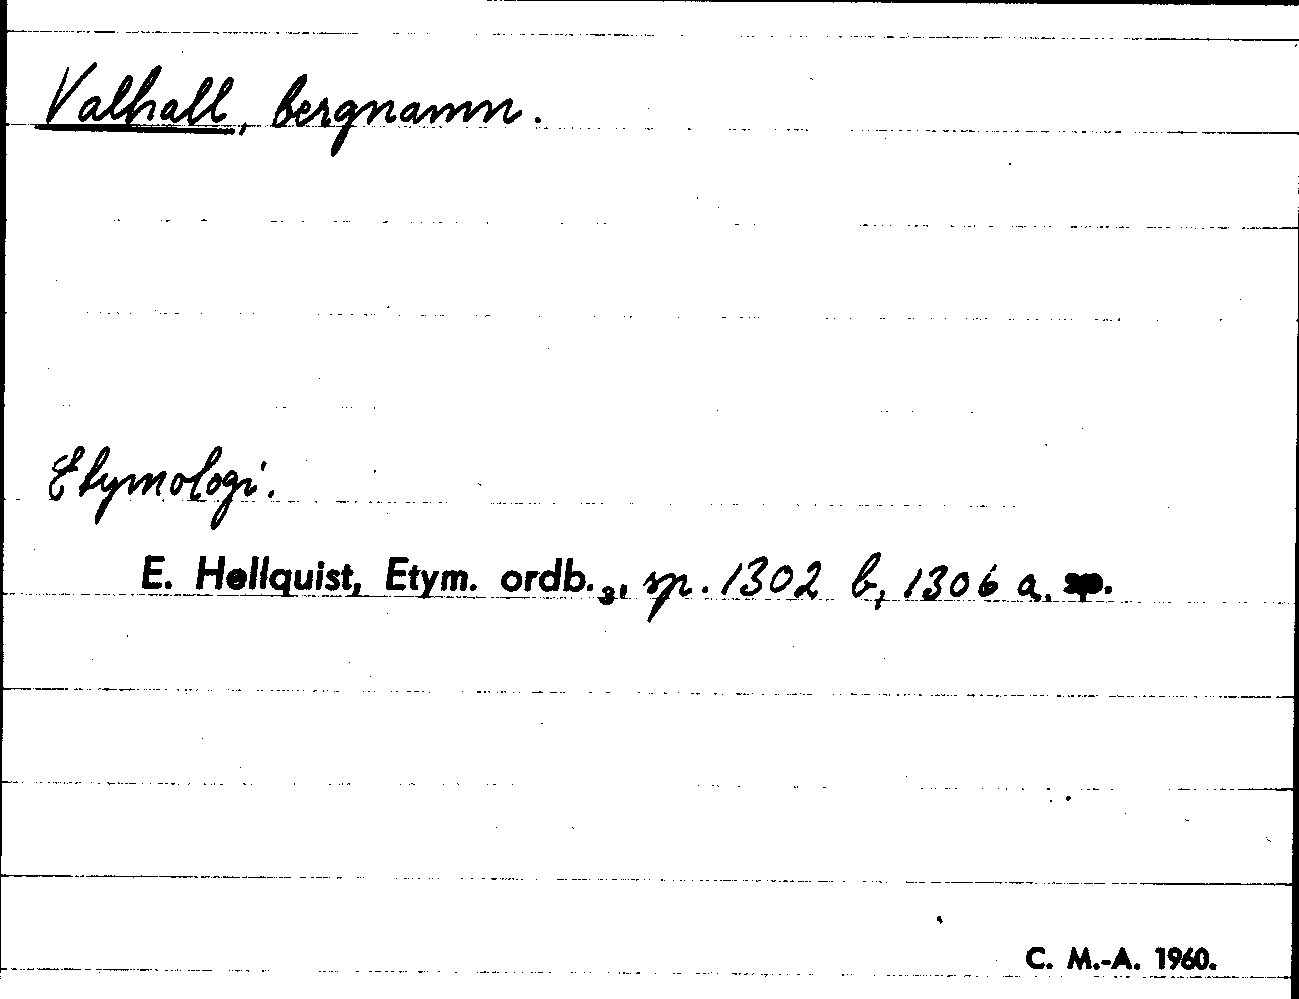 Valhall, bergnamn.
Etymologi.
E. Hellquist, Etym. ordb.₃, sp. 1302 b, 1306 a. sp.
C. M.-A. 1960.